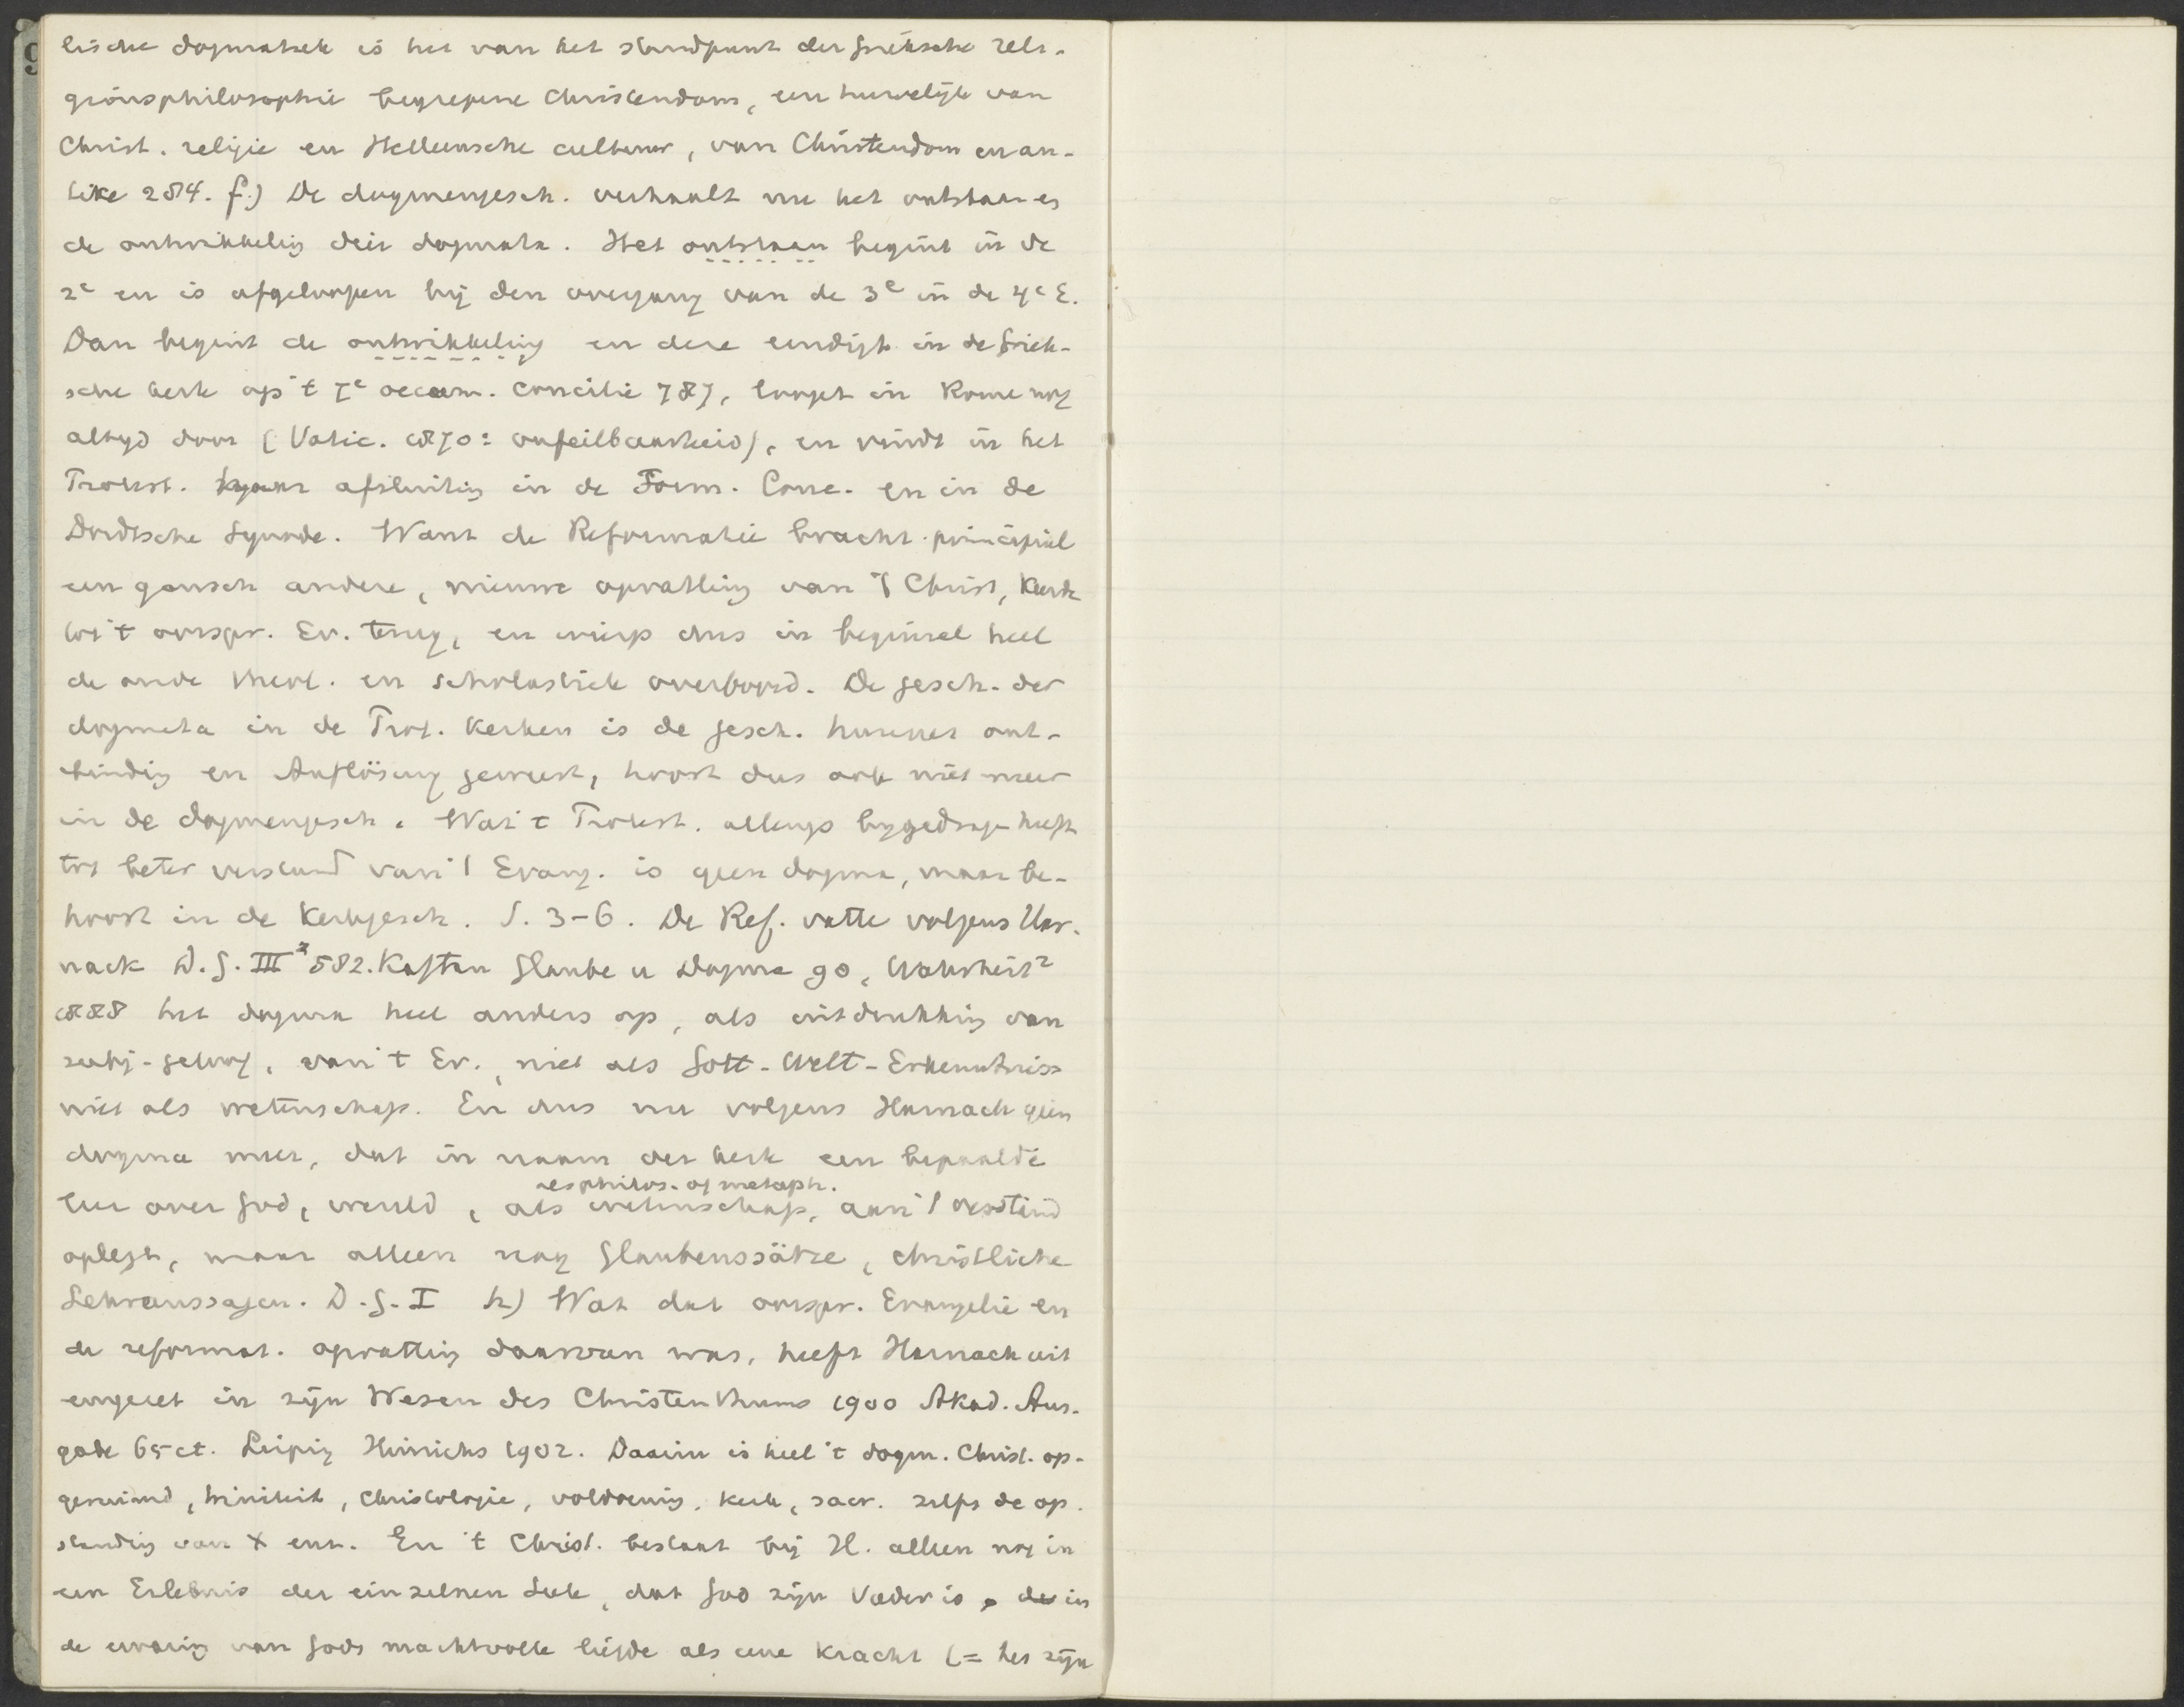 lische dogmatiek is het van het standpunt der Grieksche reli-
gionsphilosophie begrepene Christendom, een huwelijk van
Christ. religie en Helleensche cultuur, van Christendom en an-
tike 284. f.) De dogmengesch. verhaalt nu het ontstaan en
de ontwikkeling dier dogmata. Het ontstaan begint in de
2e en is afgeloopen bij den overgang van de 3e in de 4e E.
Dan begint de ontwikkeling en deze eindigt in de Griek-
sche kerk op 't 7e oecum. concilie 787, loopt in Rome nog
altijd door (Vatic. 1870: onfeilbaarheid), en vindt in het
Protest. afsluiting in de Form. Conc. en in de
Dordtsche Synode. Want de Reformatie bracht principieel
een gansch andere, nieuwe opvatting van 't Christ, keerde
tot 't oorspr. Ev. terug, en wierp dus in beginsel heel
de oude theol. en scholastiek overboord. De gesch. der
dogmata in de Prot. kerken is de gesch. hunner ont-
binding en Auflösung geweest, hoort dus ook niet meer
in de dogmengesch. Wat 't Protest. allengs bygedragen heeft
tot beter verstand van 't Evang. is geen dogma, maar be-
hoort in de Kerkgesch. S. 3-6. De Ref. vatte volgens Har-
nack D.G. III² 582. Kaftan Glaube u Dogma 90, Wahrheit²
1888 het dogma heel anders op, als uitdrukking van
subj-geloof, van 't Ev., niet als Gott-Welt-Erkenntniss
niet als wetenschap. En dus nu volgens Harnack geen
dogma meer, dat in naam der kerk een bepaalde
resp philos. of metaph.
leer over God, wereld, als wetenschap, aan 't verstand
oplegt, maar alleen nog Glaubenssätze, christliche
Lehraussagen. D.G. I h) Wat dat oorspr. Evangelie en
de reformat. opvatting daarvan was, heeft Harnack uit
eengezet in zijn Wesen des Christenthums 1900 Akad. Aus-
gabe 65 ct. Leipzig Hinrichs 1902. Daarin is heel 't dogm. Christ. op-
geruimd, triniteit, Christologie, voldoening, kerk, sacr. zelfs de op-
standing van X enz. En 't Christ. bestaat bij H. alleen nog in
een Erlebnis der einzelnen Seele, dat God zijn Vader is, in
de ervaring van Gods machtvolle liefde als eene kracht (= het zijn